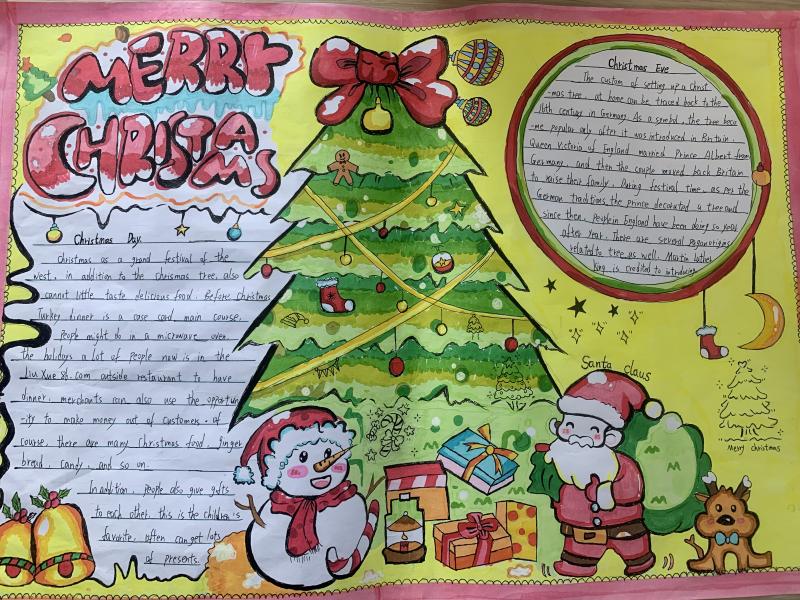 MERRY
CHRISTMAS
Christmas Day
Christmas as a grand festival of the
west, in addition to the chrismas tree, also
cannot little taste delicious food. Before christmas
Turkey dinner is a case card main course.
People might do in a microwave oven.
the holidays a lot of people now is in the
Liu Xue 86.com outside restaurant to have
dinner, merchants can also use the opportun
-ity to make money out of customers. of
course, there are many christmas food, ginger
bread, candy, and so on.
In addition, people also give gifts
to each other, this is the children's
favorite, often can get lots
of presents.
Christmas Eve
The custom of setting up a Christ
-mas tree, at home can be traced back to the
16th century in Germany. As a symbol, the tree beco
-me popular only after it was introduced in Britain.
Queen Victoria of England married Prince Albert from
Germany, and then the couple moved back Britain
to raise their family. During festival time, as per the
German traditions the prince decorated a tree and
since then, people in England have been doing so year
after year. There are several pagan origins
related to tree as well. Martin luther
king is credited to introducing
Santa claus
Merry christmas